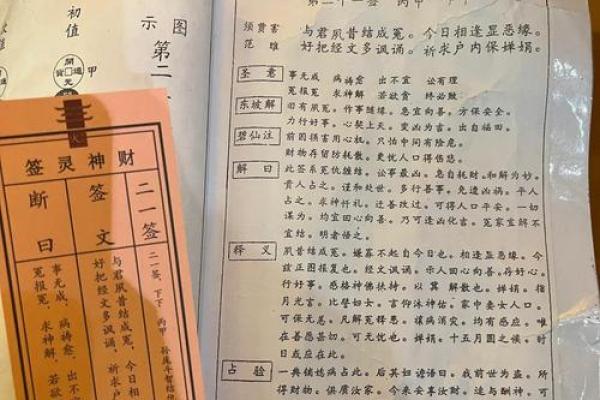 第二十一签 丙甲
须贾害
范雎
与君夙昔结成冤。今日相逢显恶缘。
好把经文多讽诵。祈求户内保婵娟。
圣意
事无成 病祷愈 出不宜 讼有理
冤报冤 求神解 若欲贪 终必败
东坡解
旧有夙冤。作事随缘。急宜向善。方保安全。
力行好事。心契上天。变凶为吉。出自福田。
碧仙注
前因损害用心机。只怕中间有险危。
财物存留防耗散。更忧人口得伤悲。
解曰
此签系冤仇缠结。讼事最凶。急自耗财。和解为妙。
贵人占之。谨和处世。多行善事。先遣凶祸。平人
占之。求神忏礼。迁善改过。可得人口平安。一切
谋为。均宜回心向善。乃可逢凶化吉。冤家宜解不
宜结。明者悟之。
释义
夙昔结成冤。嫌不起自今日也。相逢显恶缘。今
兹正图报复也。经文讽诵。示人回心向善。存好心。
行好事。感格神佛扶持。以冀解散也。婵娟。指
月光言。比譬妇女。言仰沐神估。家中妻女人口。
可保无恙。凡解冤释愆。禳病消灾。均有感应。唯
在善愿甚切。可无忧也。婵娟。十五月圆之候。时
日或应在此。
占验
一典铺妈占此。后其妇谵语曰。我前世为盗。所
得财物。俱质汝家。今来安享汝财。速与酬神。可
初值
图示
第二
甲
财神灵签
二一签
二一签 下下 丙甲 孙庞斗智结
签文
与君夙昔结成冤 今日相
好把经文多讽诵 祈求户
断曰
事无成 病祷愈 出不宜
冤报冤 求神解 若欲